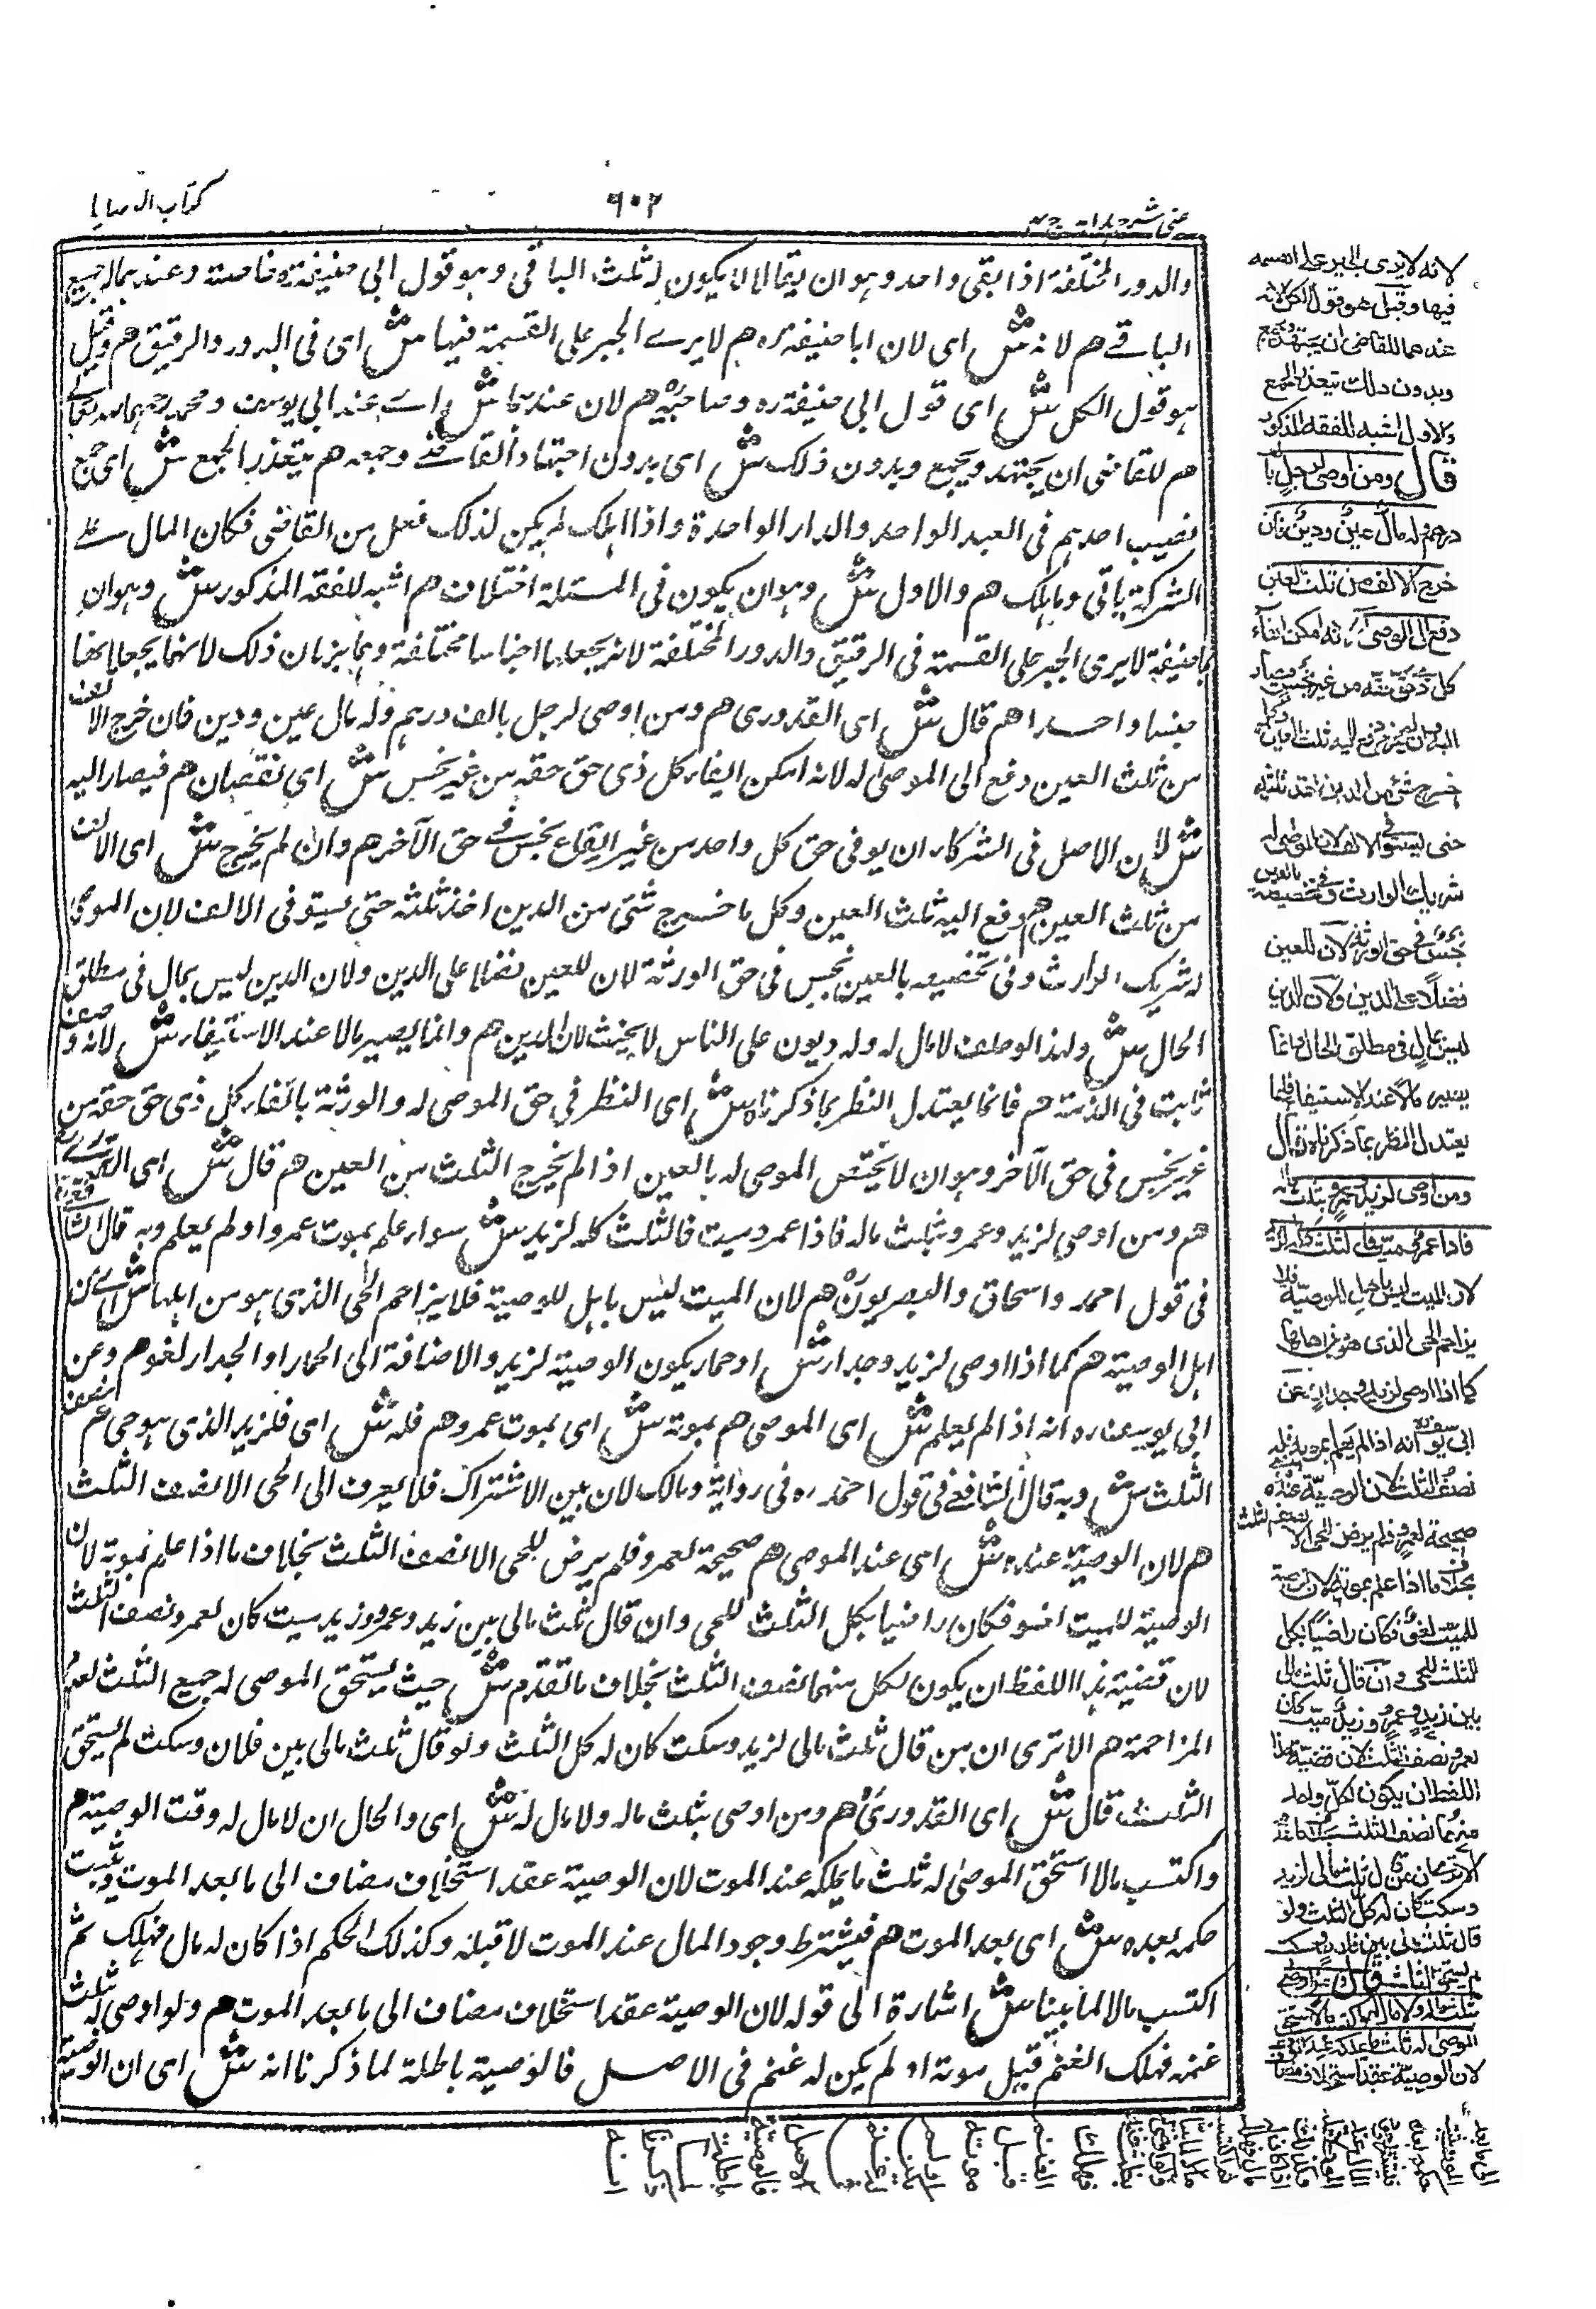 كتاب الوصايا
٩٠٢
عينى شرح هداية ج ٤
والدور المختلفة اذا بقى واحد وهو ان يقال لا يكون له ثلث الباقى وهو قول ابى حنيفة ره خاصة وعندهما له جميع
الباقے هم لانه ش اى لان ابا حنيفة ره هم لا يرے الجبر على القسمة فيها ش اى فى الدور والرقيق هم وقيل
هو قول الكل ش اى قول ابى حنيفة ره وصاحبيه هم لان عندهما ش اے عند ابى يوسف ومحمد رحمهما الله تعالے
هم للقاضى ان يجتهد ويجمع وبدون ذلك ش اى بدون اجتهاد القاضے وجمعه هم يتعذر الجمع ش اى جمع
نصيب احدهم فى العبد الواحد والدار الواحدة واذا هلك لم يكن لذلك فعل من القاضى فكان المال علے
الشركة باقى وما هلك هم والاول ش وهو ان يكون فى المسئلة اختلاف هم اشبه للفقه المذكور ش وهو ان
ابا حنيفة لا يرى الجبر على القسمة فى الرقيق والدور المختلفة لانه يجعلها اجناسا مختلفة وهما يريان ذلك لانهما يجعلانها
جنسا واحدا هم قال ش اى القدورى هم ومن اوصى لرجل بالف درهم وله مال عين ودين فان خرج الالف
من ثلث العين دفع الى الموصى له لانه امكن ايفاء كل ذى حق حقه من غير بخس ش اى نقصان هم فيصار اليه
ش لان الاصل فى الشركاء ان يوفى حق كل واحد من غير ايقاع بخس فے حق الآخر هم وان لم يخرج ش اى الالف
من ثلث العين هم دفع اليه ثلث العين وكل ما خرج شئ من الدين اخذ ثلثه حتى يستوفى الالف لان الموصى
له شريك الوارث وفى تخصيصه بالعين بخس فى حق الورثة لان للعين فضلا على الدين ولان الدين ليس بمال فى مطلق
الحال ش ولهذا لو حلف لا مال له وله ديون على الناس لا يحنث لان الدين هم وانما يصير مالا عند الاستيفاء ش لانه وصف
ثابت فى الذمة هم فانما يعتدل النظر بما ذكرناه ش اى النظر فى حق الموصى له والورثة بايفاء كل ذى حق حقه من
غير بخس فى حق الآخر وهو ان لا يختص الموصى له بالعين اذا لم يخرج الثلث من العين هم قال ش اى القدورے
هم ومن اوصى لزيد وعمرو بثلث ماله فاذا عمرو ميت فالثلث كله لزيد ش سواء علم بموت عمرو او لم يعلم وبه قال الشافعى
فى قول احمد واسحاق والبصريون هم لان الميت ليس باهل للوصية فلا يزاحم الحى الذى هو من اهلها ش اے من
اهل الوصية هم كما اذا اوصى لزيد وجدار ش او حمار يكون الوصية لزيد والاضافة الى الحمار او الجدار لغو هم وعن
ابى يوسف ره انه اذا لم يعلم ش اى الموصى هم بموته ش اى بموت عمرو هم فله ش اى فلزيد الذى هو حى هم نصف
الثلث ش وبه قال الشافعے فى قول احمد ره فى رواية ومالك لان بين الاشتراك فلا يصرف الى الحى الا نصف الثلث
هم لان الوصية عنده ش اى عند الموصى هم صحيحة لعمرو فلم يرض للحى الا نصف الثلث بخلاف ما اذا علم بموته لان
الوصية للميت لغو فكان راضيا بكل الثلث للحى وان قال ثلث مالى بين زيد وعمرو وزيد ميت كان لعمرو نصف الثلث
لان قضية هذا اللفظ ان يكون لكل منهما نصف الثلث بخلاف ما تقدم ش حيث يستحق الموصى له جميع الثلث لعدم
المزاحمة هم الا ترى ان من قال ثلث مالى لزيد وسكت كان له كل الثلث ولو قال ثلث مالى بين فلان وسكت لم يستحق
الثلث قال ش اى القدورى هم ومن اوصى بثلث ماله ولا مال له ش اى والحال ان لا مال له وقت الوصية هم
واكتسب مالا استحق الموصى له ثلث ما يملكه عند الموت لان الوصية عقد استخلاف مضاف الى ما بعد الموت ويثبت
حكمه بعده ش اى بعد الموت هم فيشترط وجود المال عند الموت لا قبله وكذلك الحكم اذا كان له مال فهلك ثم
اكتسب مالا لما بينا ش اشارة الى قوله لان الوصية عقد استخلاف مضاف الى ما بعد الموت هم ولو اوصى له بثلث
غنمه فهلك الغنم قبل موته او لم يكن له غنم فى الاصل فالوصية باطلة لما ذكرنا انه ش اى ان الوصية
لانه لا يرى الجبر على القسمة
فيها وقيل هو قول الكل لانه
عندهما للقاضى ان يجتهد ويجمع
وبدون ذلك يتعذر الجمع
والاول اشبه للفقه المذكور
قال ومن اوصى لرجل بالف
درهم وله مال عين ودين فان
خرج الالف من ثلث العين
دفع الى الموصى له لانه امكن ايفاء
كل ذى حق حقه من غير بخس فيصار
اليه وان لم يخرج دفع اليه ثلث العين وكلما
خرج شئ من الدين اخذ ثلثه
حتى يستوفى الالف لان الموصى له
شريك الوارث وفى تخصيصه بالعين
بخس فى حق الورثة لان للعين
فضلا على الدين ولان الدين
ليس بمال فى مطلق الحال وانما
يصير مالا عند الاستيفاء فانما
يعتدل النظر بما ذكرناه قال
ومن اوصى لزيد وعمرو بثلث ماله
فاذا عمرو ميت فالثلث كله لزيد
لان الميت ليس باهل للوصية فلا
يزاحم الحى الذى هو من اهلها
كما اذا اوصى لزيد وجدار وعن
ابى يوسف انه اذا لم يعلم بموته فله
نصف الثلث لان الوصية عنده
صحيحة لعمرو فلم يرض للحى الا نصف الثلث
بخلاف ما اذا علم بموته لان الوصية
للميت لغو فكان راضيا بكل
الثلث للحى وان قال ثلث مالى
بين زيد وعمرو وزيد ميت كان
لعمرو نصف الثلث لان قضية هذا
اللفظ ان يكون لكل واحد
منهما نصف الثلث بخلاف ما تقدم
الا ترى ان من قال ثلث مالى لزيد
وسكت كان له كل الثلث ولو
قال ثلث مالى بين فلان وسكت
لم يستحق الثلث قال ومن اوصى
بثلث ماله ولا مال له واكتسب مالا استحق
الموصى له ثلث ما يملكه عند الموت
لان الوصية عقد استخلاف مضاف
الى ما بعد
الموت ويثبت
حكمه بعده